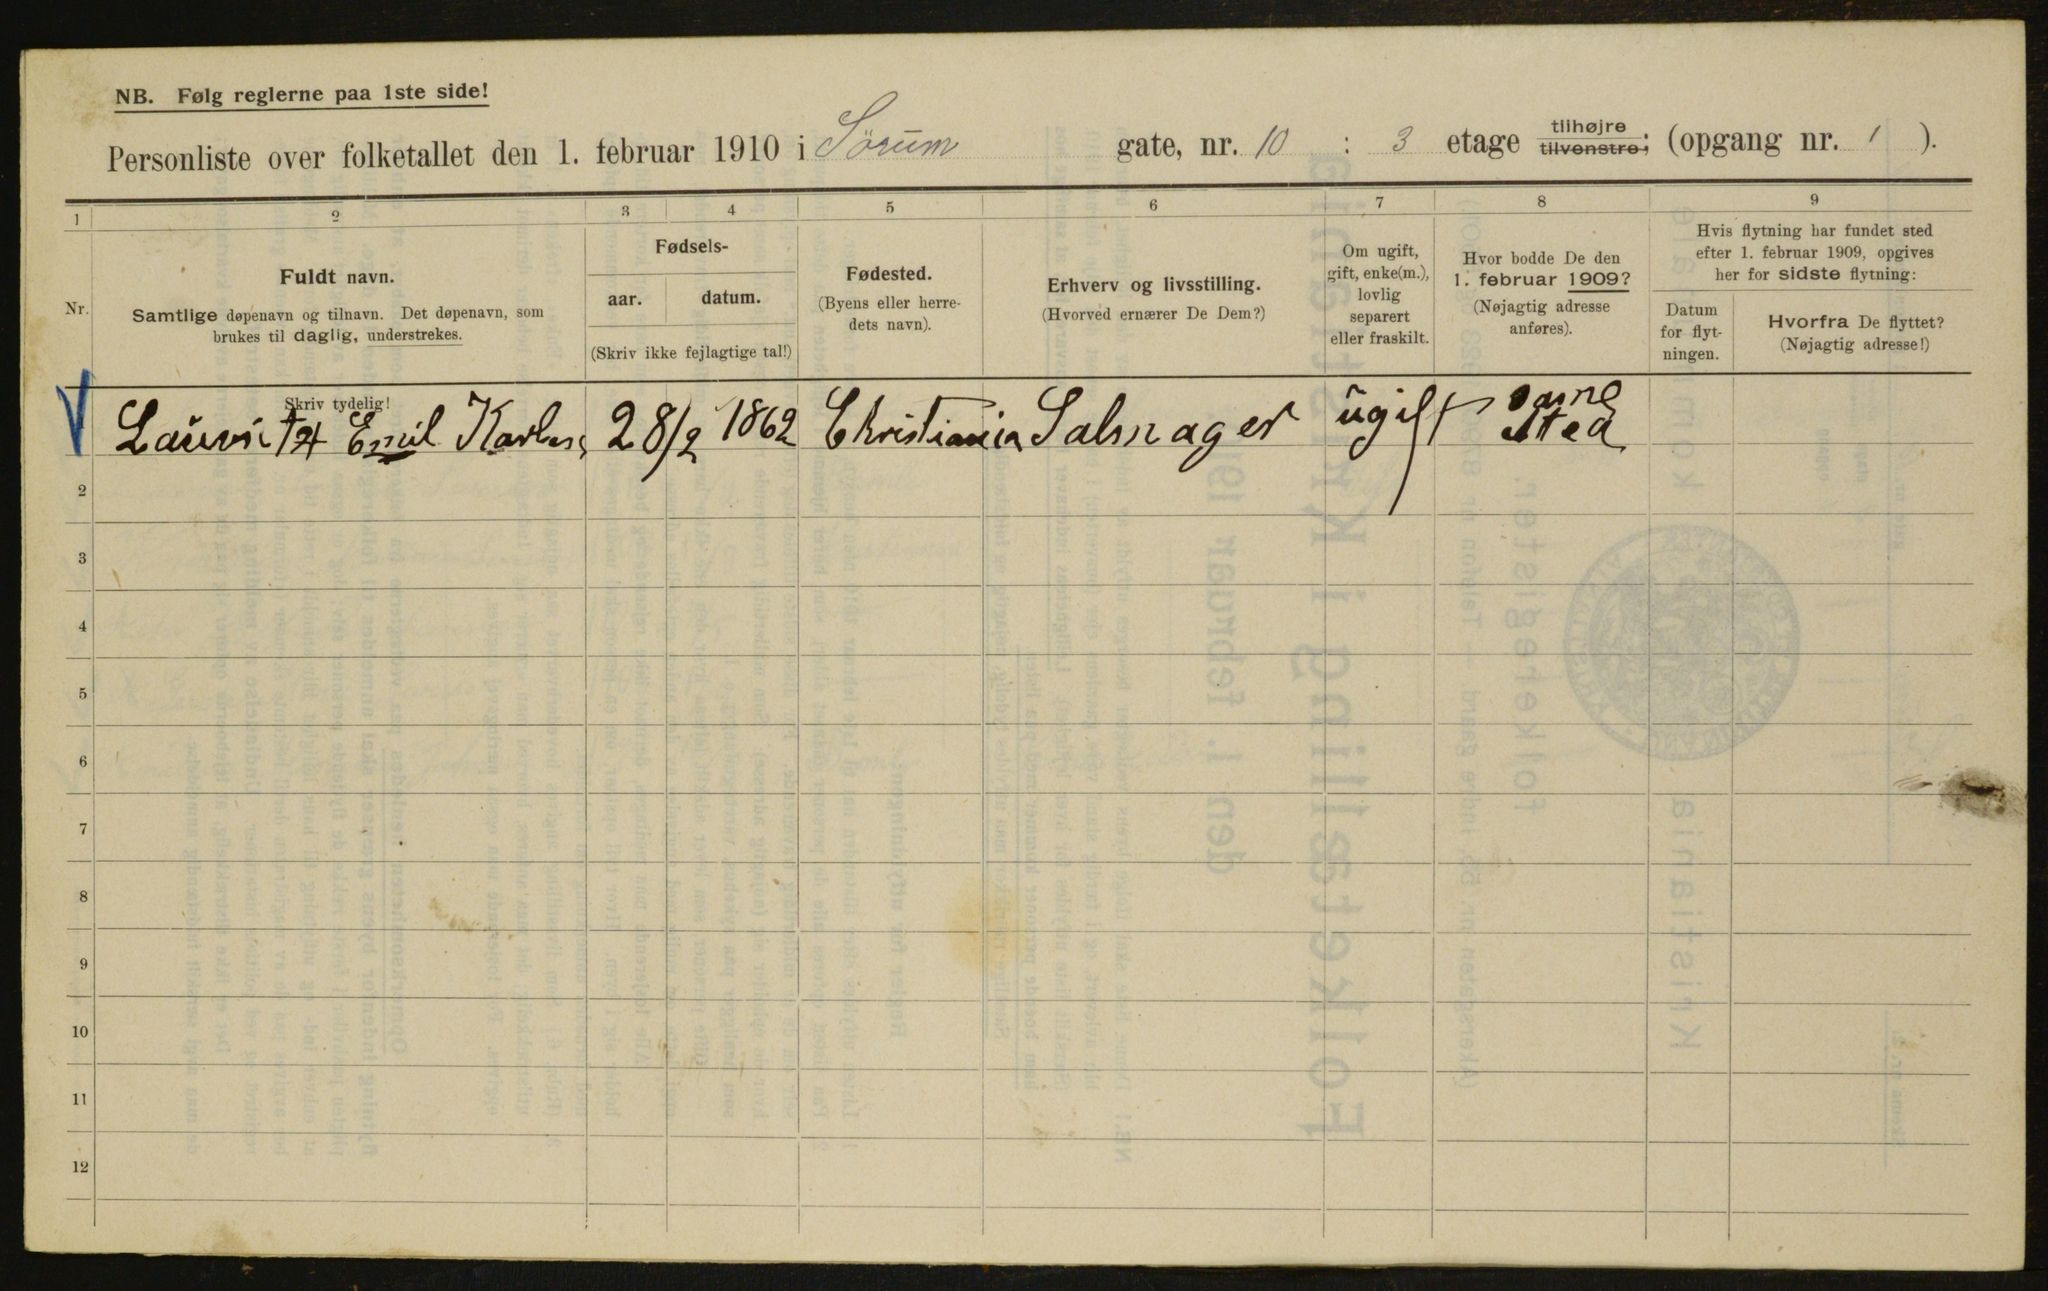 NB. Følg reglerne paa 1ste side!
Personliste over folketallet den 1. februar 1910 i Sörum gate, nr. 10 : 3 etage tilhøjre tilvenstre; (opgang nr. 1 ).
1 2 3 4 5 6 7 8 9
Nr.
Fuldt navn.
Samtlige døpenavn og tilnavn. Det døpenavn, som
brukes til daglig, understrekes.
Fødsels-
aar. datum.
(Skriv ikke fejlagtige tal!)
Fødested.
(Byens eller herre-
dets navn).
Erhverv og livsstilling.
(Hvorved ernærer De Dem?)
Om ugift,
gift, enke(m.),
lovlig
separert
eller fraskilt.
Hvor bodde De den
1. februar 1909?
(Nøjagtig adresse
anføres).
Hvis flytning har fundet sted
efter 1. februar 1909, opgives
her for sidste flytning:
Datum
for flyt-
ningen.
Hvorfra De flyttet?
(Nøjagtig adresse!)
Skriv tydelig!
Emil 28/2 1862 Christiania Salmager ugift same Sted
2
3
4
5
6
7
8
9
10
11
12